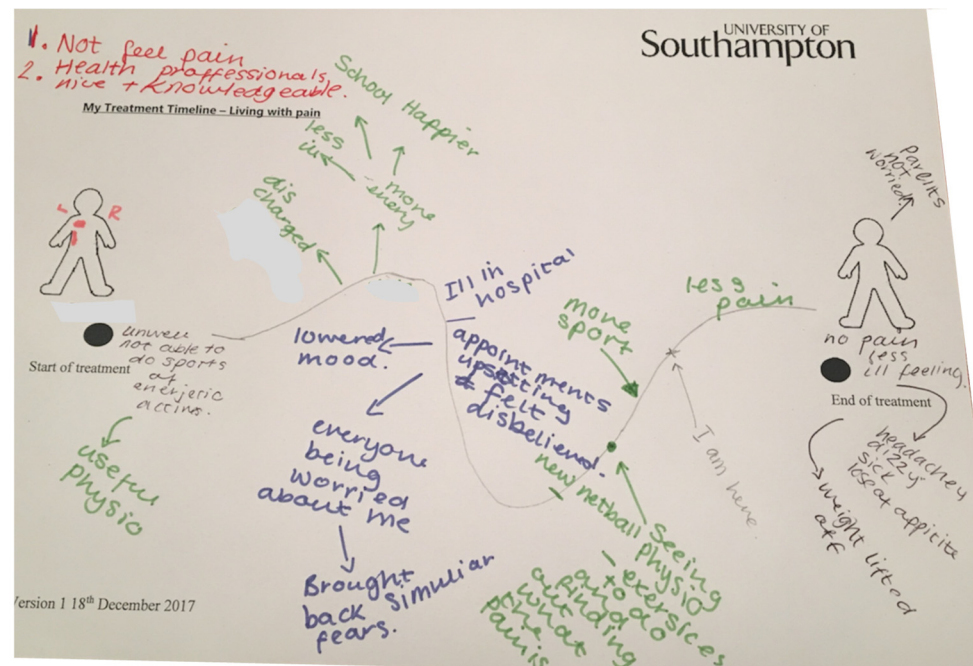 1. Not feel pain
2. Health proffessionals,
nice + knowledgeable.
UNIVERSITY OF
Southampton
My Treatment Timeline – Living with pain
School Happier
less
ill
more
energy
dis
charged
L
R
unwell
not able to
do sports
at
energeric
Start of treatment
useful
physio
Ill in
hospital
lowered
mood.
appointments
upsetting
+ felt
disbelieved.
everyone
being
worried
about me
Brought
back simuliar
fears.
more
sport
less
pain
I am here
new netball
Seeing
physio
+ exersices
to do
and
finding
out
what
pain is
parents
not
worried
no pain
less
ill feeling.
End of treatment
headachey
dizzy
sick
lose at appitite
weight lifted
off
Version 1 18th December 2017